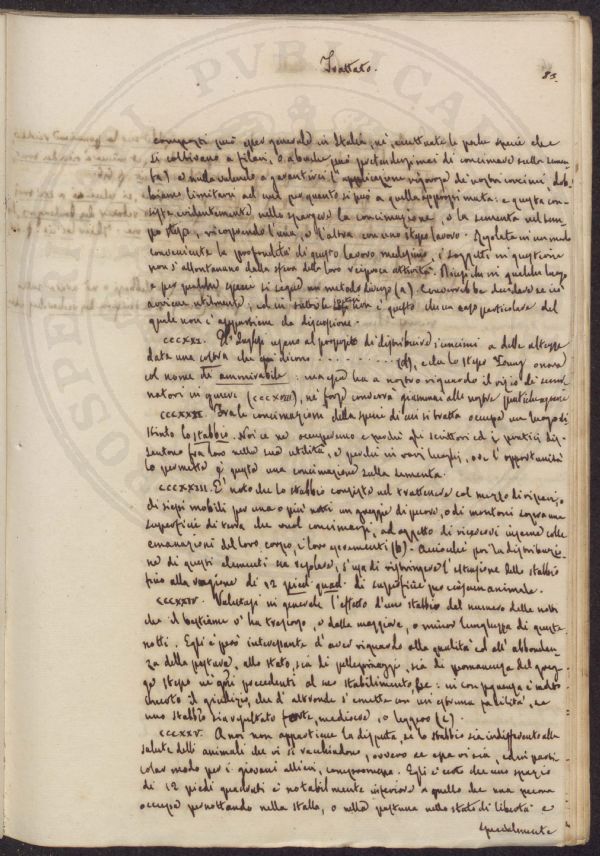 Trattato.
83.
composti può esser generale in Italia, nè, eccettuate le poche specie che
si coltivano a filari, o a buche può pretendersi mai di concimare sulla semen-
ta) e nulla valendo a garantirci l'applicazione rigorosa de' nostri concimi dob-
biamo limitarci ad una per quanto si può a quella approssimata: e questa con-
siste evidentemente nello spargere la concimazione, e la sementa nel tem-
po stesso, ricoprendo l'una, e l'altra con uno stesso lavoro. Regolata in un modo
conveniente la profondità di questo lavoro medesimo, i soggetti in questione
non s'allontanano dalla sfera della loro reciproca attività. Che in qualche luogo
e per qualche specie si segue un metodo diverso (a). Converrebbe decidere se ciò
utilmente; ed in è questo che un caso particolare del
quale non è appartiene da discussione.
CCCXXI. Gl'Inglesi usano al proposito di distribuire i concimi a delle altezze
date una coltra che qui dicono . . . . . . . . . (d), e che lo stesso Young onora
col nome di ammirabile: ma essa ha a nostro riguardo il vizio de' semi-
natori in genere (CCCXVIII), nè forse converrà giammai alle nostre pratiche agrarie
CCCXXII. Fra le concimazioni della specie di cui si tratta occupa un luogo di-
stinto lo stabbio. Noi ce ne occuperemo e perchè gli scrittori ed i pratici dis-
sentono fra loro nella sua utilità, e perchè in vari luoghi, ove l'opportunità
lo permette è questa una concimazione sulla sementa.
CCCXXIII. È noto che lo stabbio consiste nel trattenere col mezzo di ripari, o
di siepi mobili per una o più notti un gregge di pecore, o di montoni sopra una
superficie di terra che vuol concimarsi, ad oggetto di ricevervi insieme colle
emanazioni del loro corpo, i loro escrementi (b). Acciocchè poi la distribuzio-
ne di questi elementi sia regolare, s'usa di restringere l'estensione dello stabbio
fino alla ragione di 12 piedi quad. di superficie per ciascun animale.
CCCXXIV. Valutasi in generale l'effetto d'uno stabbio dal numero delle notti
che il bestiame v'ha trascorso, o dalla maggiore, o minor lunghezza di queste
notti. Egli è però interessante d'aver riguardo alla qualità ed all'abbondan-
za della pastura, allo stato, sia di pellegrinaggio, sia di permanenza del greg-
ge stesso ne' giorni precedenti al suo stabilimento, &c: in conseguenza è molto
incerto il giudizio, che d'altronde s'emette con un'estrema facilità, se
uno stabbio sia riputato forte, mediocre, o leggero (c).
CCCXXV. A noi non appartiene la disputa, se lo stabbio sia indifferente alla
salute delli animali che vi si racchiudono, ovvero se essa vi sia, ed in parti-
colar modo per i giovani allievi, compromessa. Egli è certo che uno spazio
di 12 piedi quadrati è notabilmente inferiore a quello che una pecora
occupa pernottando nella stalla, o nella pastura nello stato di libertà e
specialmente